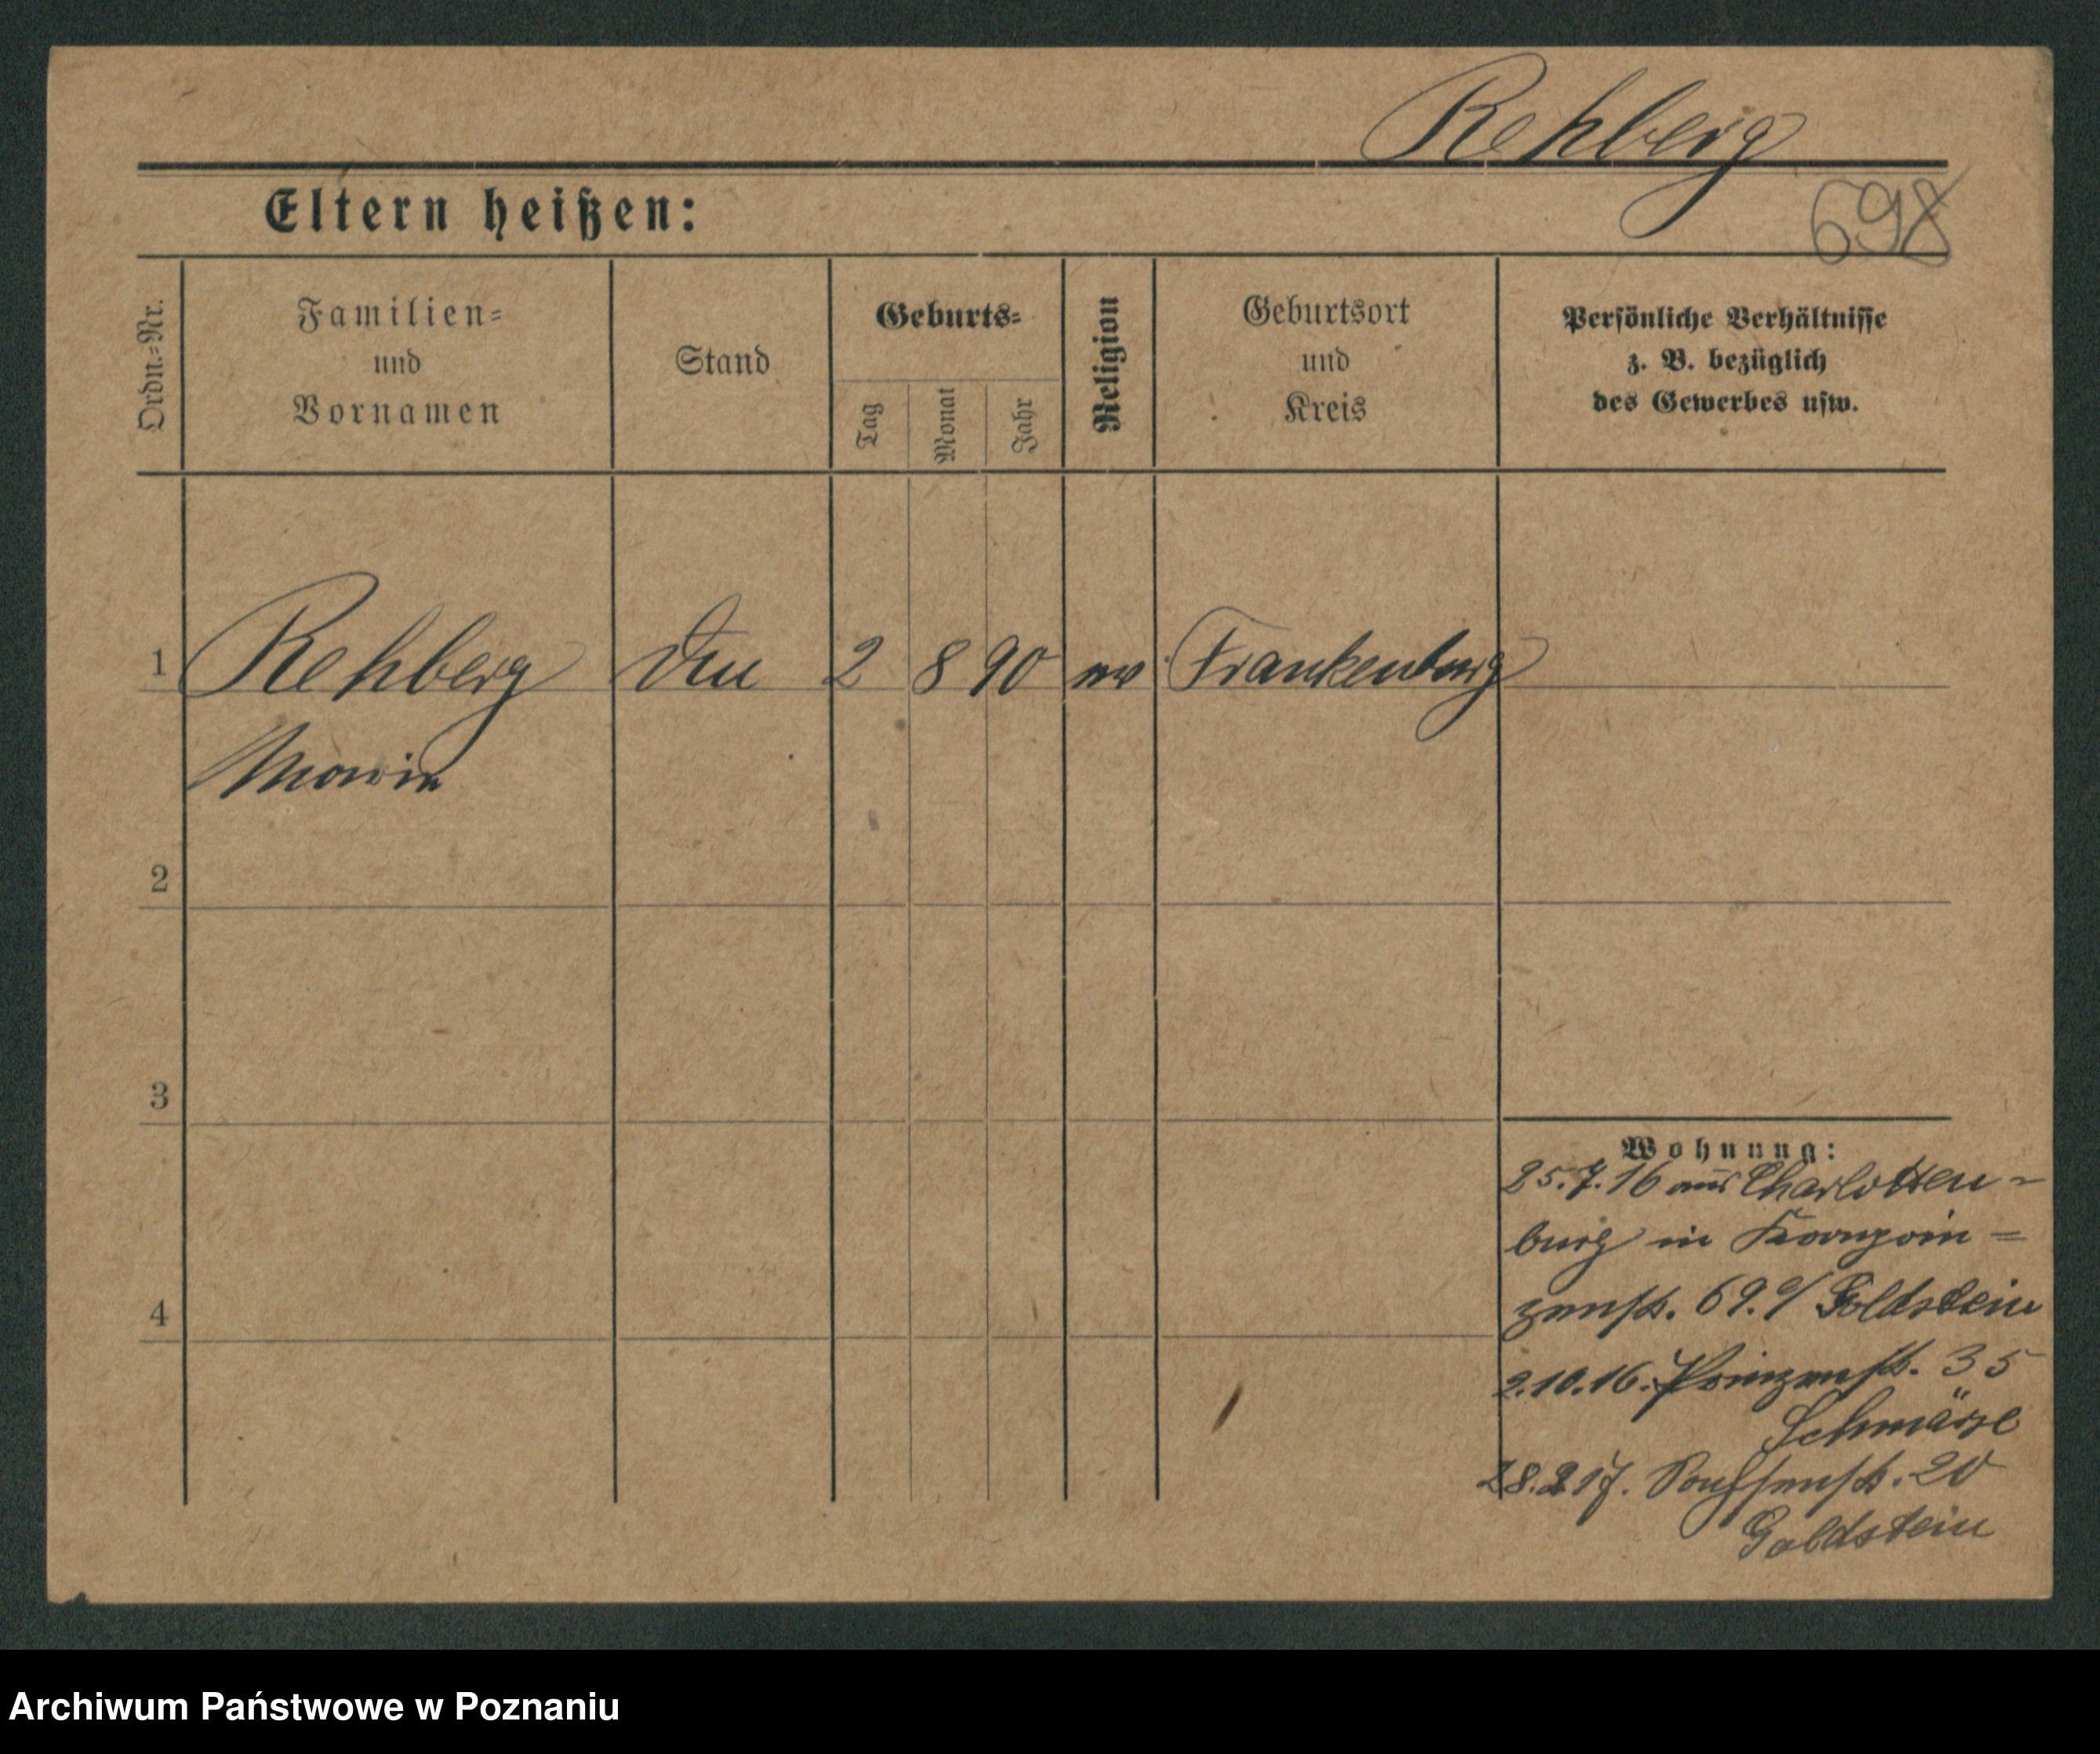 Rehberg
698
Eltern heißen:
Ordn.=Nr.
Familien=
und
Vornamen
Stand
Geburts=
Tag
Monat
Jahr
Religion
Geburtsort
und
Kreis
Persönliche Verhältnisse
z. B. bezüglich
des Gewerbes usw.
1 Rehberg 2 8 90 ev Frankenburg
2
3
4
Wohnung:
25.7.16 aus Charlotten-
burg in Kronprin=
zenstr. 69. Goldstein
2.10.16. Prinzenstr. 35
28.2.17. 20
Goldstein
Archiwum Państwowe w Poznaniu